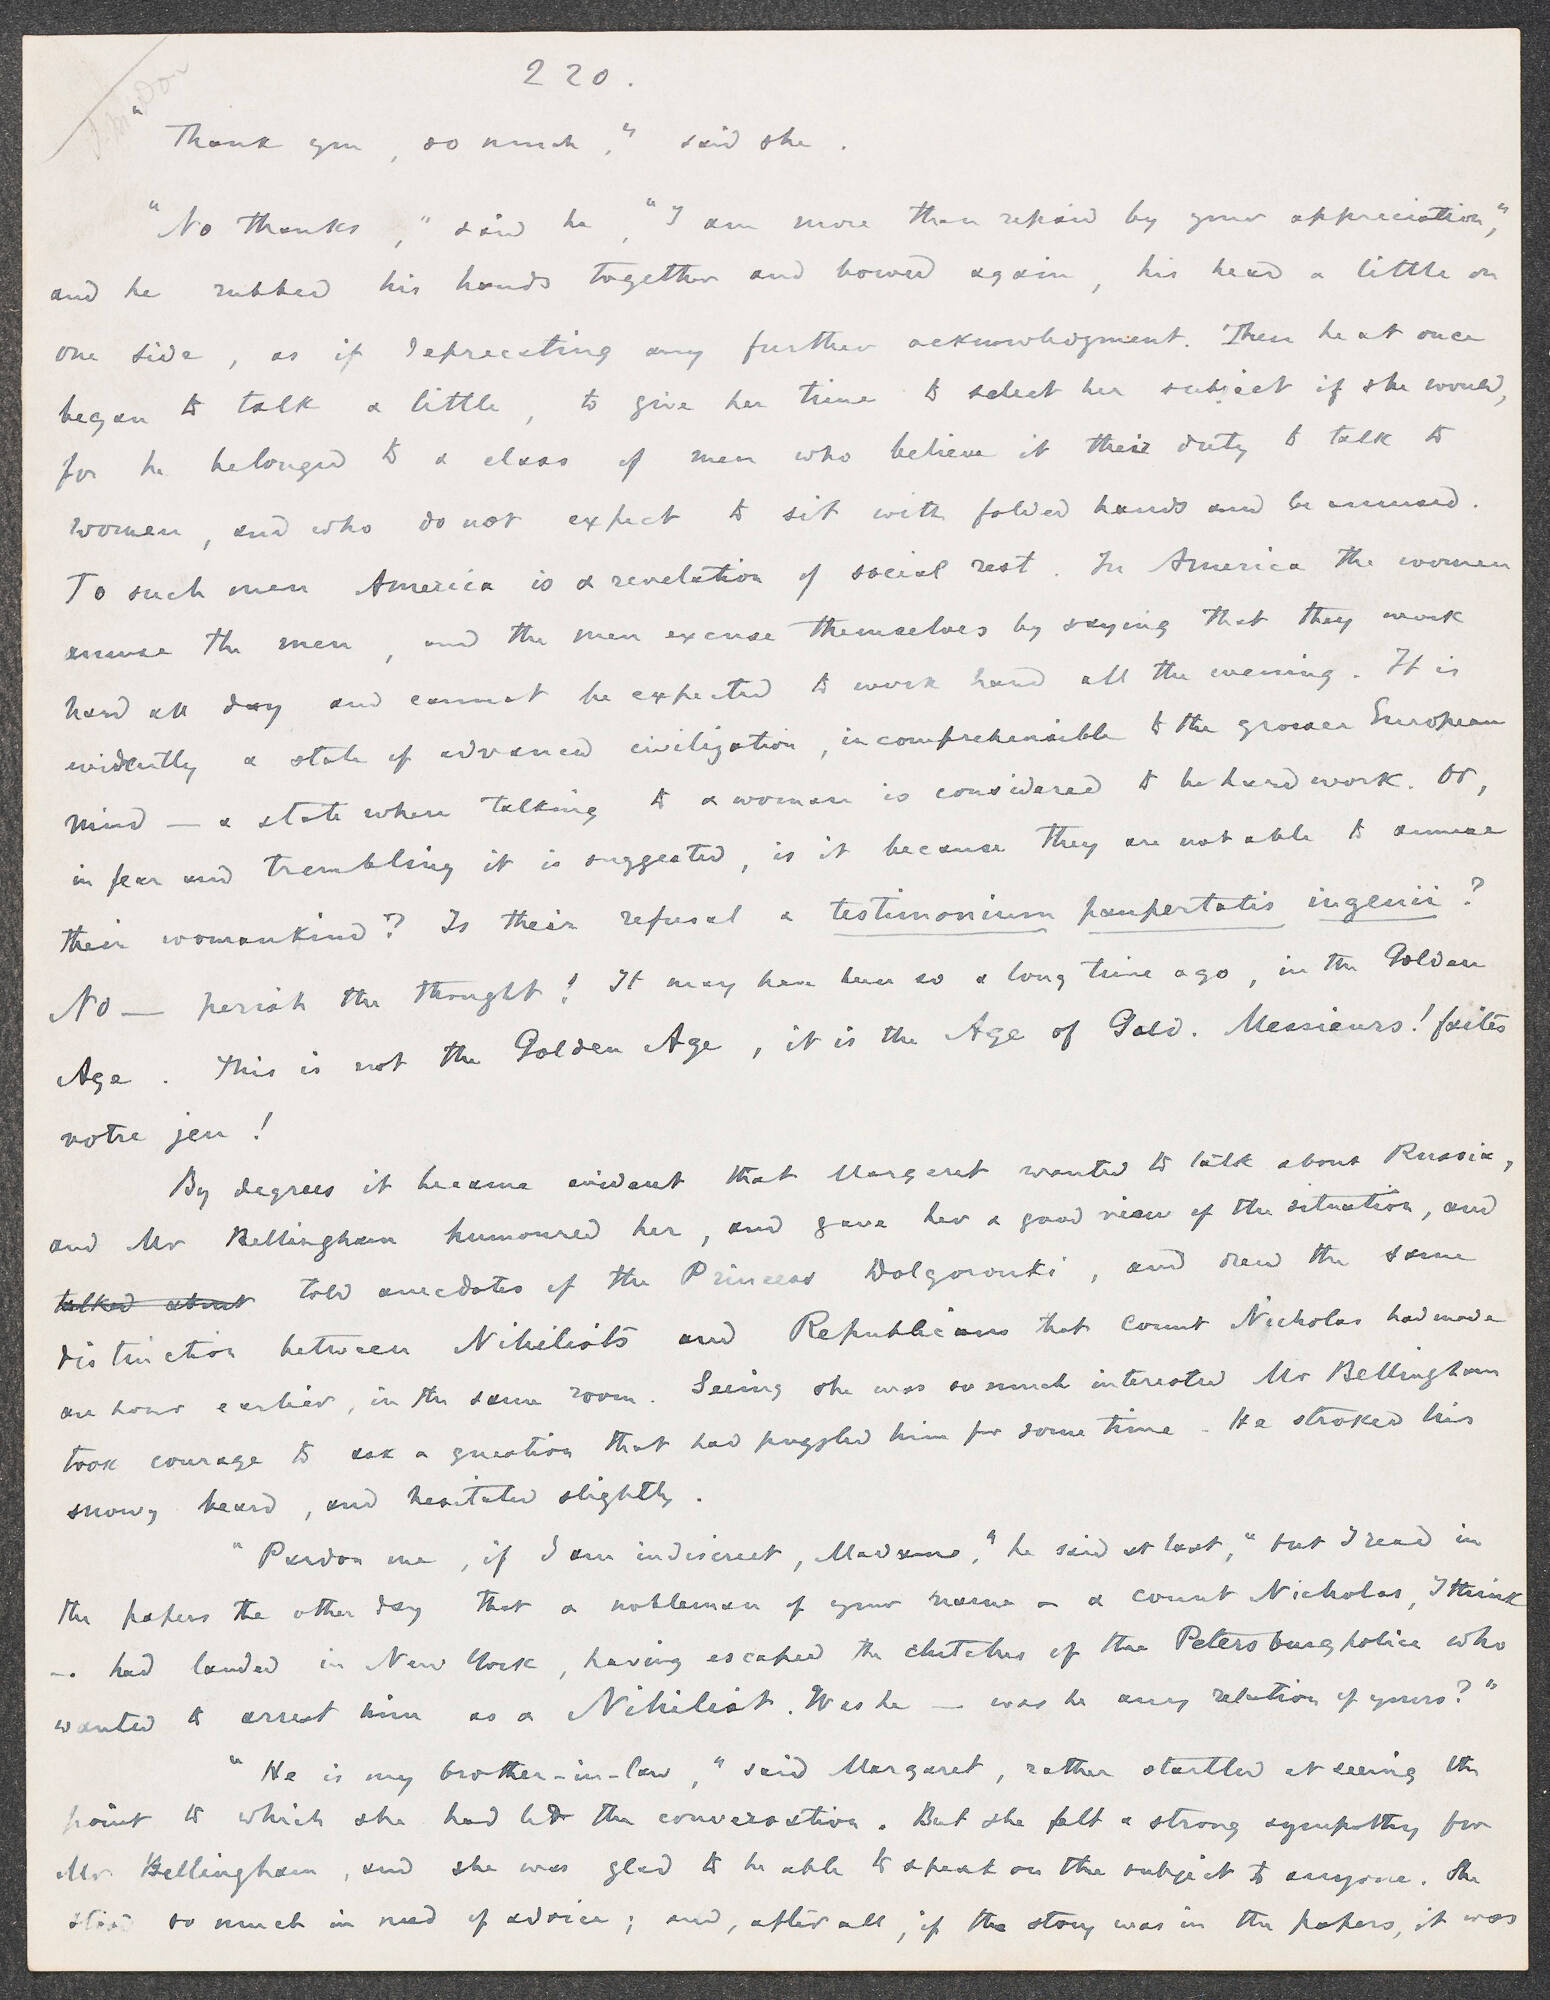 220.
"Thank you, so much," said she.
"No thanks," said he, "I am more than repaid by your appreciation,"
and he rubbed his hands together and bowed again, his head a little on
one side, as if deprecating any further acknowledgment. Then he at once
began to talk a little, to give her time to select her subject if she would,
for he belonged to a class of men who believe it their duty to talk to
women, and who do not expect to sit with folded hands and be amused.
To such men America is a revelation of social rest. In America the women
amuse the men, and the men excuse themselves by saying that they work
hard all day and cannot be expected to work hard all the evening. It is
evidently a state of advanced civilization, incomprehensible to the grosser European
mind — a state where talking to a woman is considered to be hard work. Or,
in fear and trembling it is suggested, is it because they are not able to amuse
their womankind? Is their refusal a testimonium paupertatis ingenii?
No — perish the thought! It may have been so a long time ago, in the Golden
Age. This is not the Golden Age, it is the Age of Gold. Messieurs! faites
votre jeu!
By degrees it became evident that Margaret wanted to talk about Russia,
and Mr Bellingham humoured her, and gave her a good view of the situation, and
talked about told anecdotes of the Princess Dolgorouki, and drew the same
distinction between Nihilists and Republicans that Count Nicholas had made
an hour earlier, in the same room. Seeing she was so much interested Mr Bellingham
took courage to ask a question that had puzzled him for some time. He stroked his
snowy beard, and hesitated slightly.
"Pardon me, if I am indiscreet, Madame," he said at last, "but I read in
the papers the other day that a nobleman of your name — a Count Nicholas, I think
—. had landed in New York, having escaped the clutches of the Petersburg police who
wanted to arrest him as a Nihilist. Was he — was he any relation of yours?"
"He is my brother-in-law," said Margaret, rather startled at seeing the
point to which she had led the conversation. But she felt a strong sympathy for
Mr Bellingham, and she was glad to be able to speak on the subject to anyone. She
stood so much in need of advice; and, after all, if the story was in the papers, it was